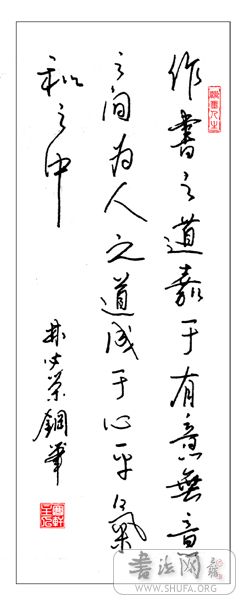 作書之道嘉于有意無意
之间为人之道成于心平氣
和之中
林榮鋼筆
書法网
WWW.SHUFA.COM